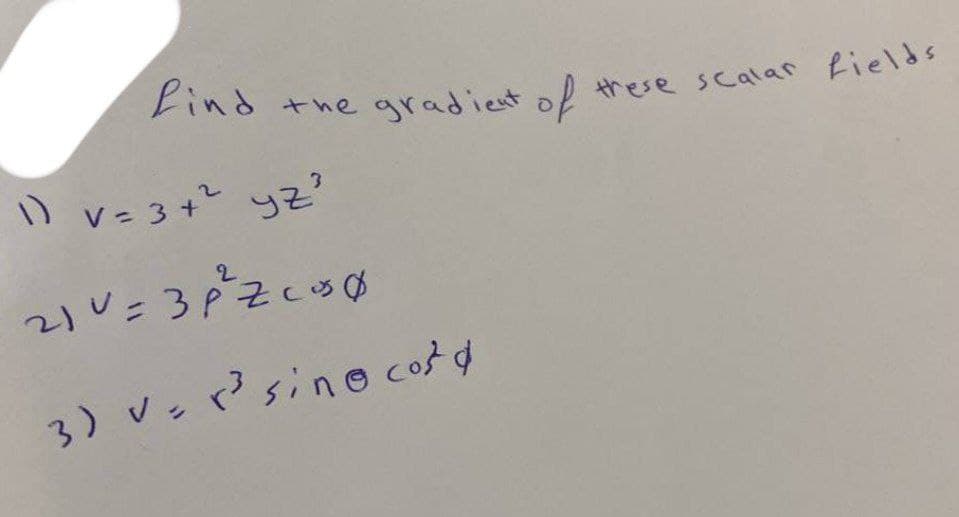 find the gradient of these scalar fields
1) V = 3 t² yz³
2) V = 3ρ²z cos φ
3) V = r³ sin θ cos² φ